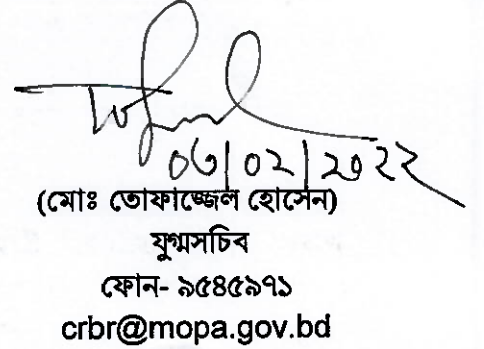 ০৬/০২/২০২২
(মোঃ তোফাজ্জেল হোসেন)
যুগ্মসচিব
ফোন- ৯৫৪৫৯৭১
crbr@mopa.gov.bd